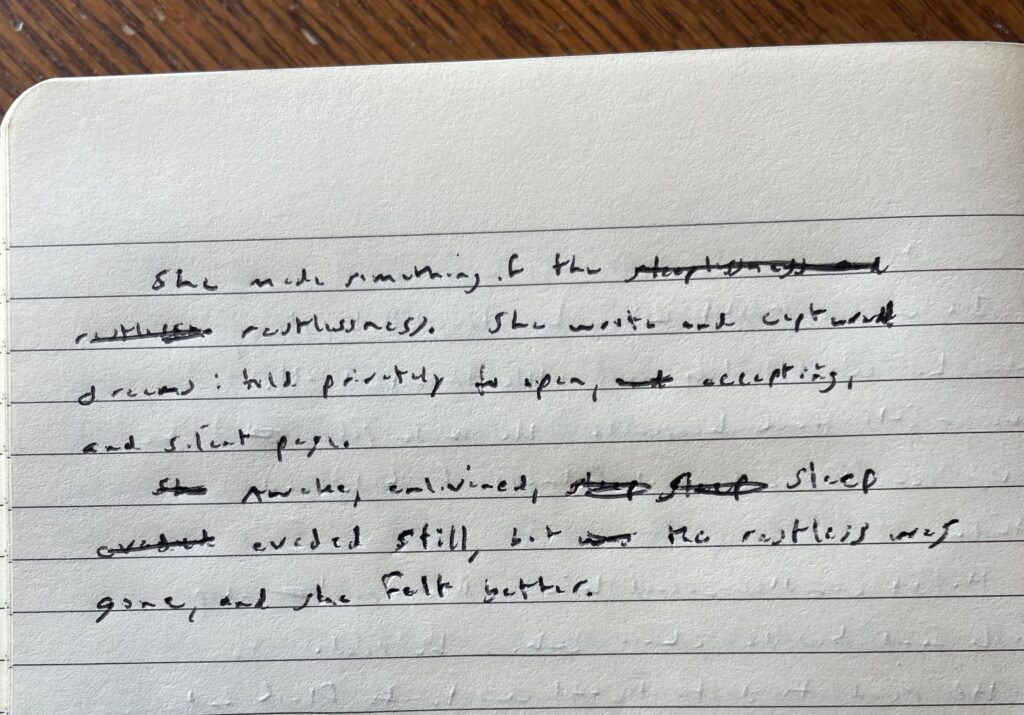 She made something of the sleeplessness and
restless restlessness. She wrote and captured
dreams: told privately to open, and accepting,
and silent page.
She Awake, enlivined, sleep sleep sleep
evaded evaded still, but was the restless was
gone, and she felt better.